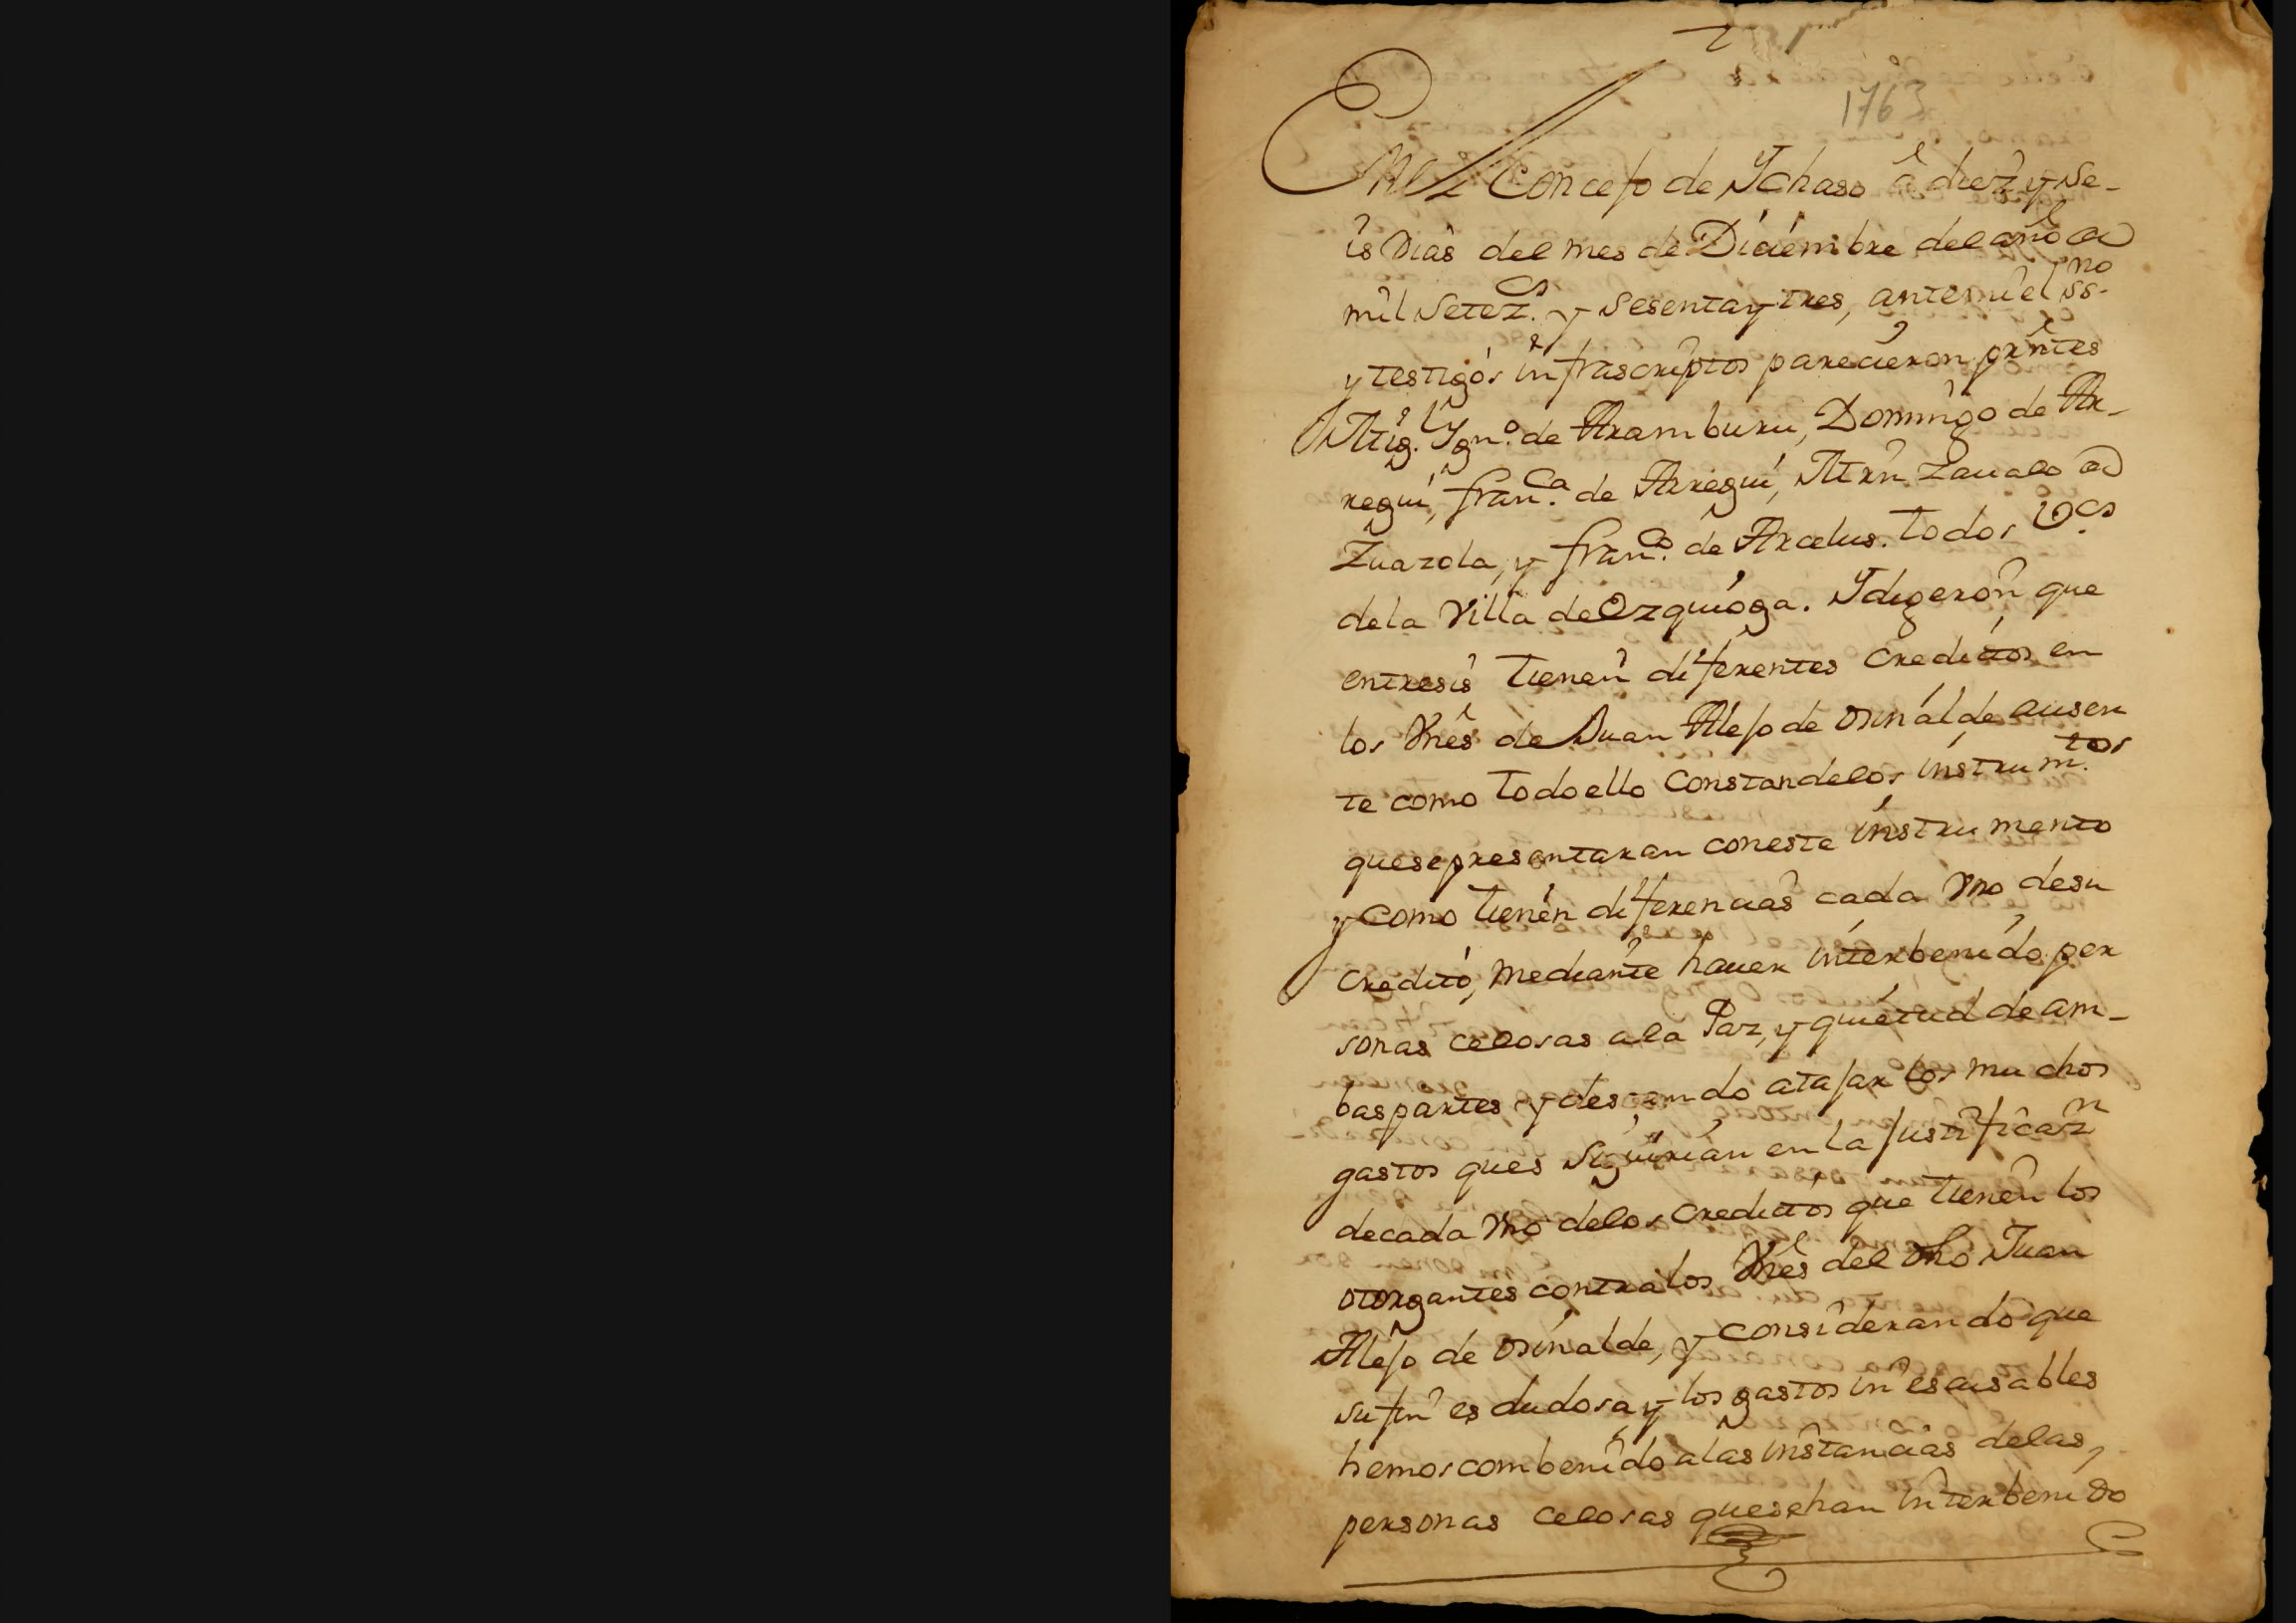 1763
En el Concejo de Ychaso à diez y se-
is dias del mes de Diciembre del año de
mil setez.os y sesenta y tres, ante mi el ss.no
y testigos infrascriptos parecieron prêntes
Mig.l Ygn.o de Aramburu, Domingo de Ar-
regui, fran.ca de Arregui, Mrn Zaualo de
Zuazola, y fran.co de Arcelus. todos v.os
de la Villa de Ezquioga. Y digeron que
entre sis tienen diferentes creditos en
los Vnês de Juan Alejo de Osinalde, ausen
te como todo ello constan de los instrum.tos
que se presentaran con este instrumento
y como tienen diferencias cada vno de su
credito, mediante hauer interbenido per
sonas celosas a la Paz, y quietud de am-
bas partes y deseando atajar los muchos
gastos que s siguirian en la justificaz.n
de cada vno de los creditos que tienen los
otorgantes contra los Vnês del dho Juan
Alejo de Osinalde, y considerando que
su fin es dudosa, y los gastos in escusables
hemos combenido a las instancias de las,
personas celosas que se han interbenido